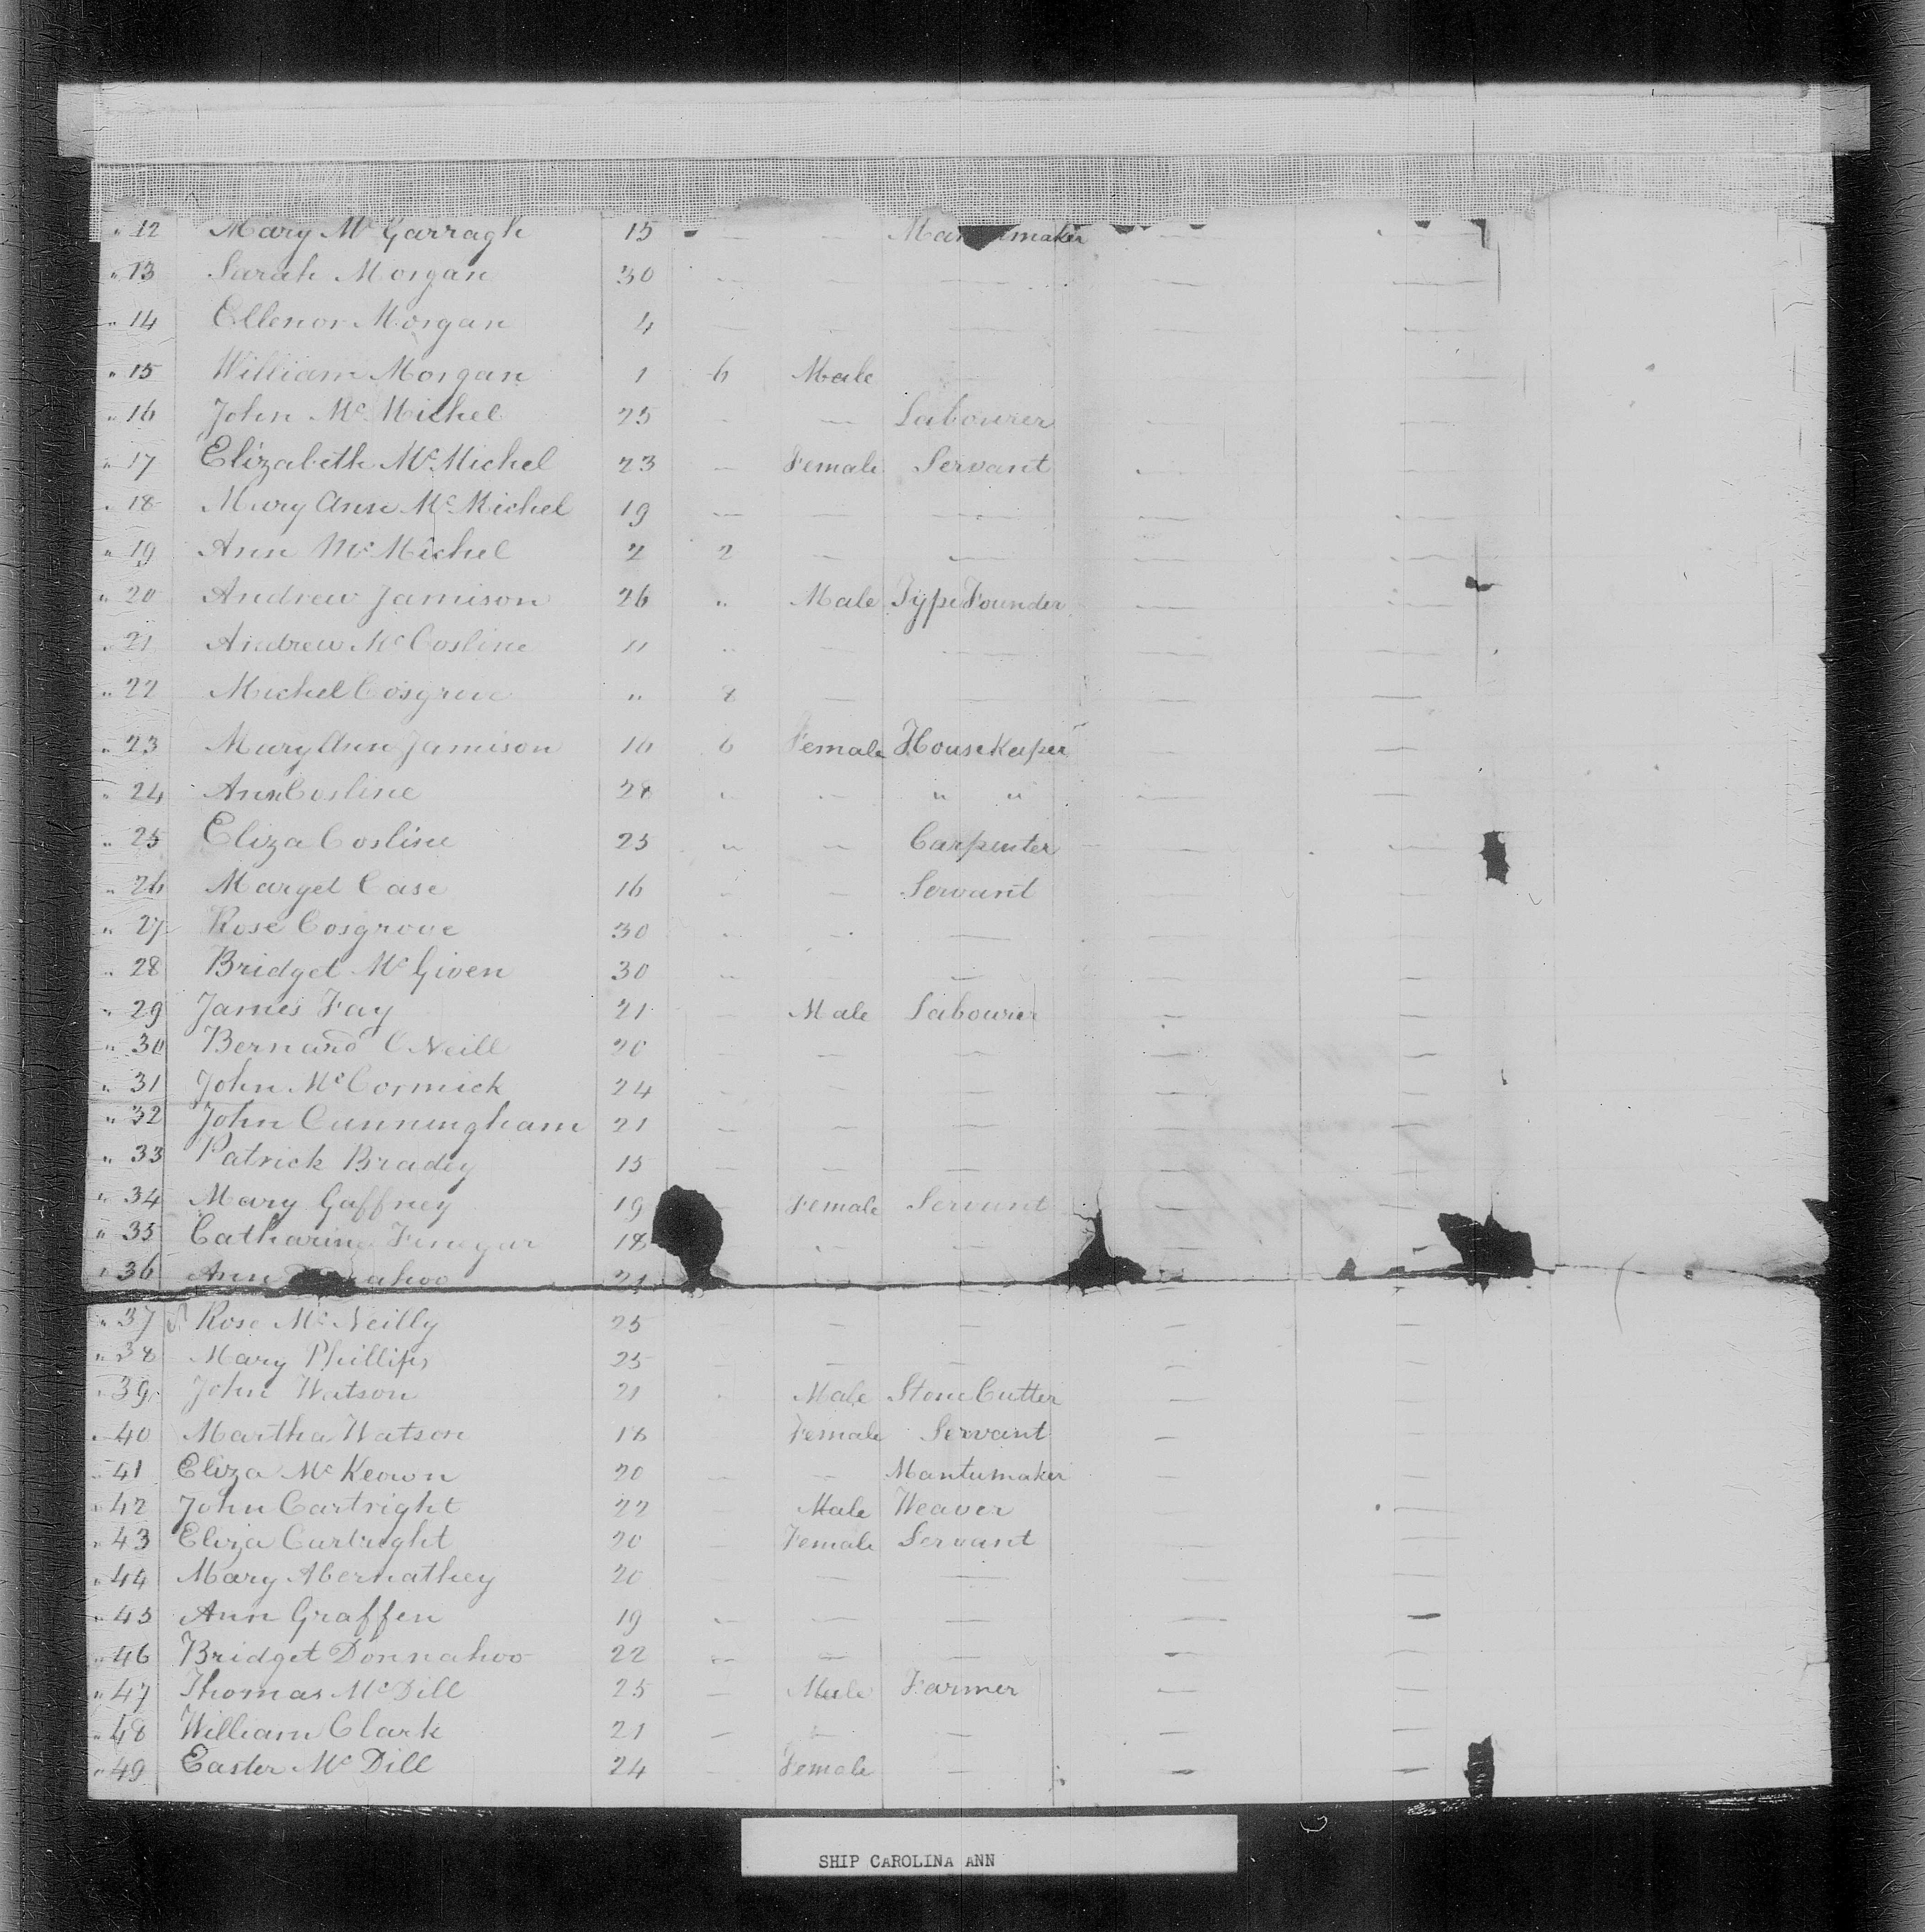 " 12 Mary McGarragh 15 — —
" 13 Sarah Morgan 30 — — — — —
" 14 Ellenor Morgan 4 — — — — —
" 15 William Morgan 1 6 Male — — —
" 16 John McMichel 25 — — Labourer — —
" 17 Elizabeth McMichel 23 — Female Servant — —
" 18 Mary Ann McMichel 19 — — — — —
" 19 Ann McMichel 2 2 — — — —
" 20 Andrew Jamison 26 " Male Type Founder — —
" 21 Andrew McCosline 11 " — — — —
" 22 Michel Cosgrove " 8 — — — —
" 23 Mary Ann Jamison 16 6 Female House Keeper — —
" 24 Ann Cosline 28 " — " " — —
" 25 Eliza Cosline 25 " — Carpenter — —
" 26 Marget Case 16 " — Servant — —
" 27 Rose Cosgrove 30 " — — — —
" 28 Bridget McGiven 30 " — — — —
" 29 James Fay 21 — Male Labourer — —
" 30 Bernard ONeill 20 — — — — —
" 31 John McCormick 24 — — — — —
" 32 John Cunningham 21 — — — — —
" 33 Patrick Bradey 15 — — — — —
" 34 Mary Gaffney 19 — Female Servant — —
" 35 Catharine Finegar 18 — — — —
" 36 Ann 21 — — — —
" 37 Rose McNeilly 25 — — — — —
" 38 Mary Phillips 25 — — — — —
" 39 John Watson 21 Male Stone Cutter — —
" 40 Martha Watson 18 Female Servant — —
" 41 Eliza McKeown 20 — — Mantumaker — —
" 42 John Cartright 22 — Male Weaver — —
" 43 Eliza Cartright 20 — Female Servant — —
" 44 Mary Abernathey 20 — — — — —
" 45 Ann Graffen 19 — — — — —
" 46 Bridget Donnahoo 22 — — — — —
" 47 Thomas McDill 25 — Male Farmer — —
" 48 William Clark 21 — — — — —
" 49 Easter McDill 24 — Female — — —
SHIP CAROLINA ANN